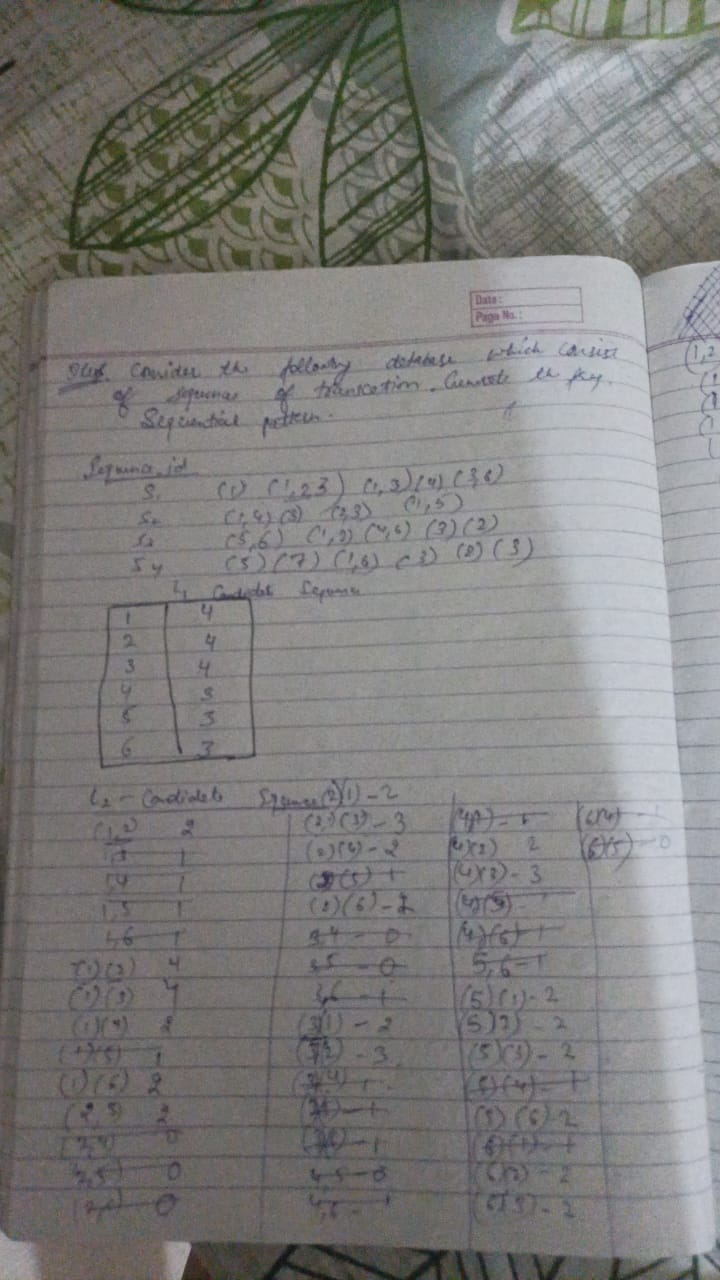 Date:
Page No.:
Consider the following database which consist
of sequence of transcation. Generate the freq.
Sequential pattern.
Sequence id
S1 (1) (1,2 3) (1,3) (4) (3,6)
S2 (1,4) (3) (2,3) (1,5)
S3 (5,6) (1,2) (4,6) (3) (2)
S4 (5) (7) (1,6) (3) (2) (3)
L1 Candidate Sequence
1 4
2 4
3 4
4 3
5 3
6 3
L2 - Candidate Sequence
(1,2) 2
1,3 1
1,4 1
1,5 1
1,6 1
(1)(2) 4
(1)(3) 4
(1)(4) 2
(1)(5) 1
(1)(6) 2
(2,3) 2
0
2,5) 0
0
(2)(1) - 2
(2)(3) - 3
(2)(4) - 2
(2)(5) 1
(2)(6) - 2
3,4 - 0
3,5 - 0
3,6 - 1
(3)(1) - 2
(3)(2) - 3
- 1
- 1
4,5 - 0
4,6 - 1
(4)(2) 2
(4)(3) - 3
(4)(6) 1
5,6 - 1
(5)(1) - 2
(5)(2) - 2
(5)(3) - 2
(5)(4) - 1
(5)(6) - 2
(6)(1) - 1
(6)(2) - 2
(6)(3) - 2
(6)(4) - 1
(6)(5) - 0
(1,2